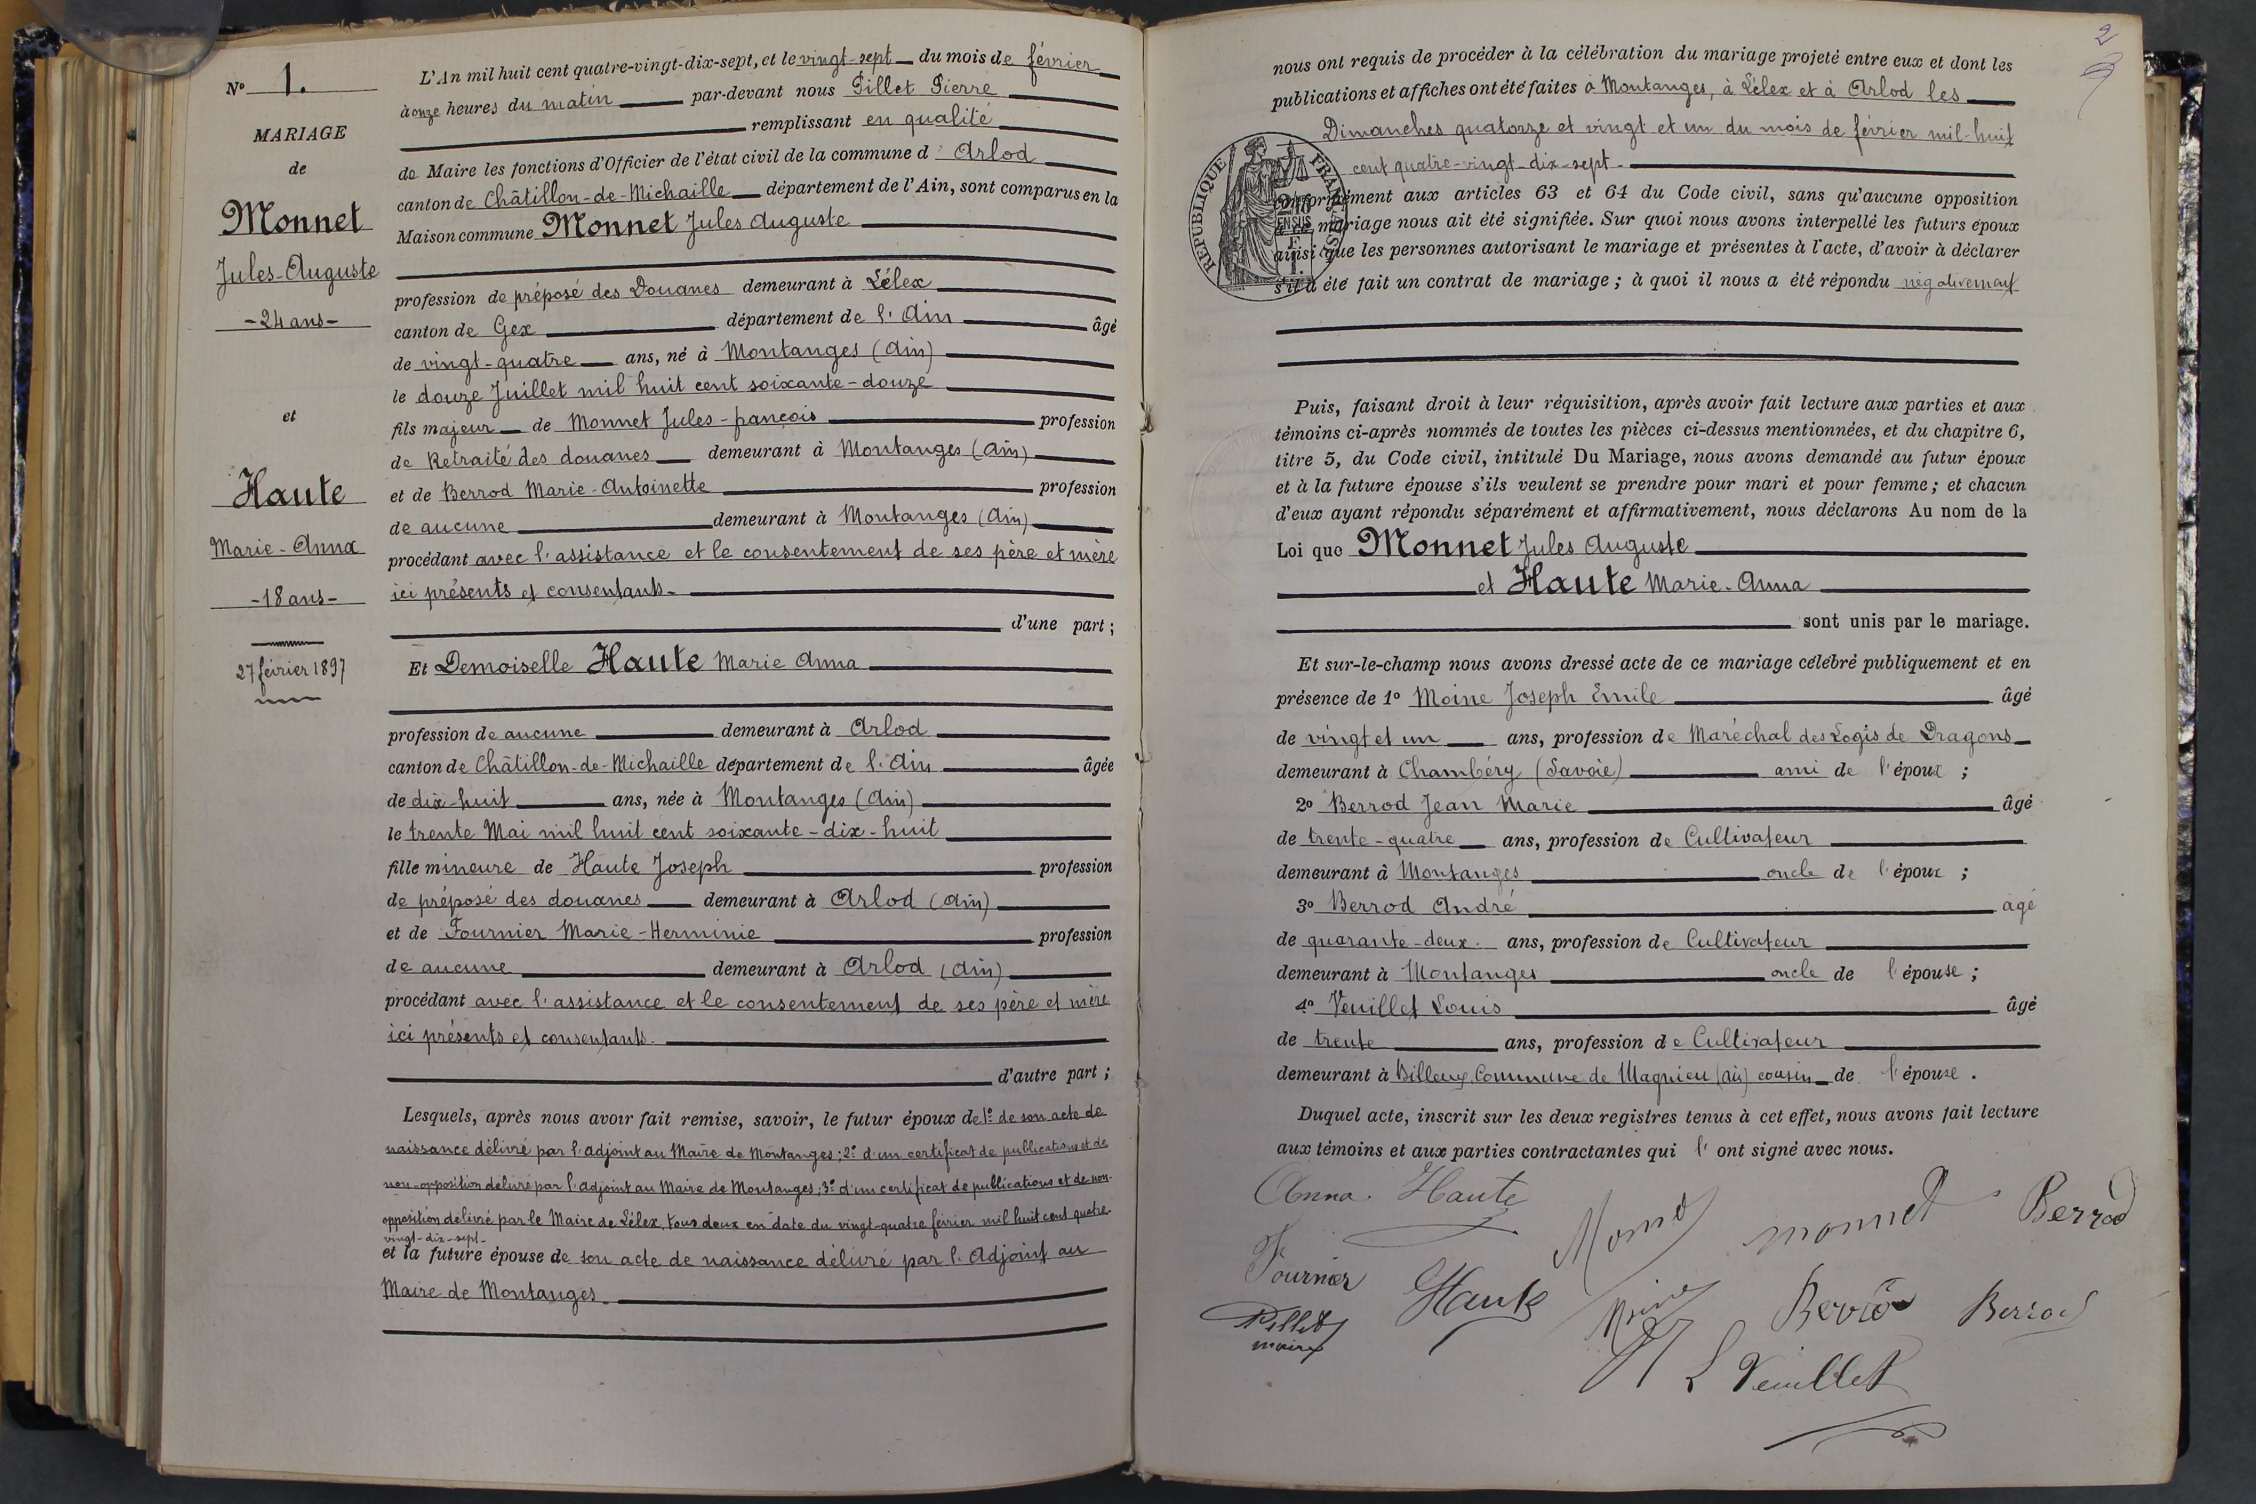 N° 1.
MARIAGE
de
Monnet
Jules-Auguste
-24 ans-
et
Haute
Marie-Anna
-18 ans-
27 février 1897
L'An mil huit cent quatre-vingt-dix-sept, et le vingt-sept du mois de février
à onze heures du matin par-devant nous Pillet Pierre
remplissant en qualité
de Maire les fonctions d'Officier de l'état civil de la commune d'Arlod
canton de Châtillon-de-Michaille département de l'Ain, sont comparus en la
Maison commune Monnet Jules Auguste
profession de préposé des Douanes demeurant à Lélex
canton de Gex département de l'Ain âgé
de vingt-quatre ans, né à Montanges (Ain)
le douze Juillet mil huit cent soixante-douze
fils majeur de Monnet Jules-françois profession
de Retraité des douanes demeurant à Montanges (Ain)
et de Berrod Marie-Antoinette profession
de aucune demeurant à Montanges (Ain)
procédant avec l'assistance et le consentement de ses père et mère
ici présents et consentants.
d'une part ;
Et Demoiselle Haute Marie Anna
profession de aucune demeurant à Arlod
canton de Châtillon-de-Michaille département de l'Ain âgée
de dix-huit ans, née à Montanges (Ain)
le trente Mai mil huit cent soixante-dix-huit
fille mineure de Haute Joseph profession
de préposé des douanes demeurant à Arlod (Ain)
et de Fournier Marie-Herminie profession
de aucune demeurant à Arlod (Ain)
procédant avec l'assistance et le consentement de ses père et mère
ici présents et consentants.
d'autre part ;
Lesquels, après nous avoir fait remise, savoir, le futur époux de 1° de son acte de
naissance délivré par l'adjoint au Maire de Montanges ; 2° d'un certificat de publications et de
non-opposition délivré par l'adjoint au Maire de Montanges ; 3° d'un certificat de publications et de non-
opposition délivré par le Maire de Lélex, tous deux en date du vingt-quatre février mil huit cent quatre-
vingt-dix-sept-
et la future épouse de son acte de naissance délivré par l'Adjoint au
Maire de Montanges.
2
nous ont requis de procéder à la célébration du mariage projeté entre eux et dont les
publications et affiches ont été faites à Montanges, à Lélex et à Arlod les
Dimanches quatorze et vingt et un du mois de février mil-huit
cent quatre-vingt-dix-sept.
RÉPUBLIQUE FRANÇAISE
conformément aux articles 63 et 64 du Code civil, sans qu'aucune opposition
à ce mariage nous ait été signifiée. Sur quoi nous avons interpellé les futurs époux
ainsi que les personnes autorisant le mariage et présentes à l'acte, d'avoir à déclarer
s'il a été fait un contrat de mariage ; à quoi il nous a été répondu négativement
Puis, faisant droit à leur réquisition, après avoir fait lecture aux parties et aux
témoins ci-après nommés de toutes les pièces ci-dessus mentionnées, et du chapitre 6,
titre 5, du Code civil, intitulé Du Mariage, nous avons demandé au futur époux
et à la future épouse s'ils veulent se prendre pour mari et pour femme ; et chacun
d'eux ayant répondu séparément et affirmativement, nous déclarons Au nom de la
Loi que Monnet Jules Auguste
et Haute Marie-Anna
sont unis par le mariage.
Et sur-le-champ nous avons dressé acte de ce mariage célébré publiquement et en
présence de 1° Moine Joseph Emile âgé
de vingt et un ans, profession de Maréchal des Logis de Dragons
demeurant à Chambéry (Savoie) ami de l'époux ;
2° Berrod Jean Marie âgé
de trente-quatre ans, profession de Cultivateur
demeurant à Montanges oncle de l'époux ;
3° Berrod André âgé
de quarante-deux. ans, profession de Cultivateur
demeurant à Montanges oncle de l'épouse ;
4° Veuillet Louis âgé
de trente ans, profession de Cultivateur
demeurant à Billeux Commune de Magnieu (ain) cousin de l'épouse.
Duquel acte, inscrit sur les deux registres tenus à cet effet, nous avons fait lecture
aux témoins et aux parties contractantes qui l'ont signé avec nous.
Anna. Haute
Monnet
monnet
Berrod
Fournier
Haute
Moine
Berrod
Berrod
Pillet
maire
L Veuillet